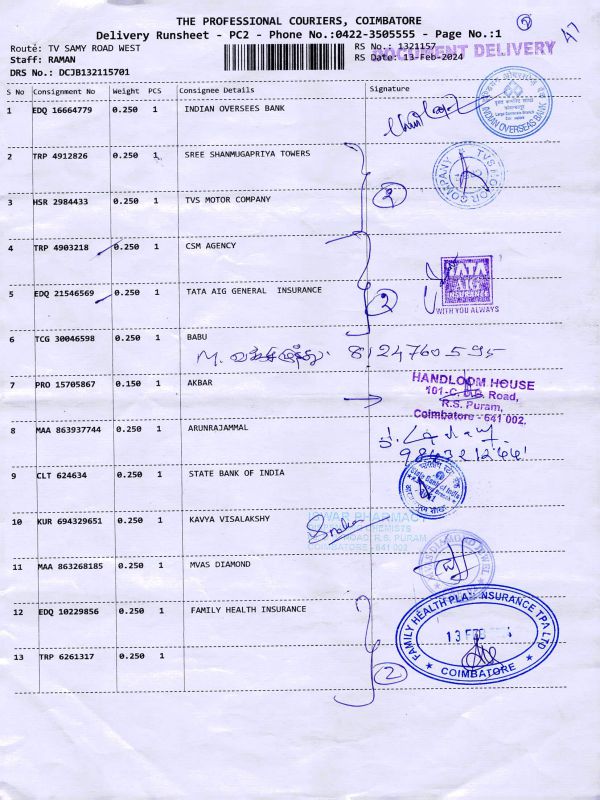 THE PROFESSIONAL COURIERS, COIMBATORE
Delivery Runsheet - PC2 - Phone No.:0422-3505555 - Page No.:1
Route: TV SAMY ROAD WEST
RS No.: 1321157
DOCUMENT DELIVERY
47
Staff: RAMAN
RS Date: 13-Feb-2024
DRS No.: DCJB132115701
S No Consignment No Weight PCS Consignee Details Signature
1 EDQ 16664779 0.250 1 INDIAN OVERSEES BANK
INDIAN OVERSEAS BANK
2 TRP 4912826 0.250 1 SREE SHANMUGAPRIYA TOWERS
TVS MOTOR COMPANY
3 HSR 2984433 0.250 1 TVS MOTOR COMPANY
2
4 TRP 4903218 0.250 1 CSM AGENCY
TATA
AIG
INSURANCE
WITH YOU ALWAYS
5 EDQ 21546569 0.250 1 TATA AIG GENERAL INSURANCE
2
6 TCG 30046598 0.250 1 BABU
M. 8124760595
7 PRO 15705867 0.150 1 AKBAR
HANDLOOM HOUSE
101-C, D.B. Road,
R.S. Puram,
Coimbatore - 641 002.
8 MAA 863937744 0.250 1 ARUNRAJAMMAL
9 CLT 624634 0.250 1 STATE BANK OF INDIA
State Bank of India
10 KUR 694329651 0.250 1 KAVYA VISALAKSHY
PHARMACY
ROAD, R.S. PURAM
COIMBATORE - 641 002
11 MAA 863268185 0.250 1 MVAS DIAMOND
12 EDQ 10229856 0.250 1 FAMILY HEALTH INSURANCE
FAMILY HEALTH PLAN INSURANCE TPA LTD
13 FEB
COIMBATORE
13 TRP 6261317 0.250 1
2